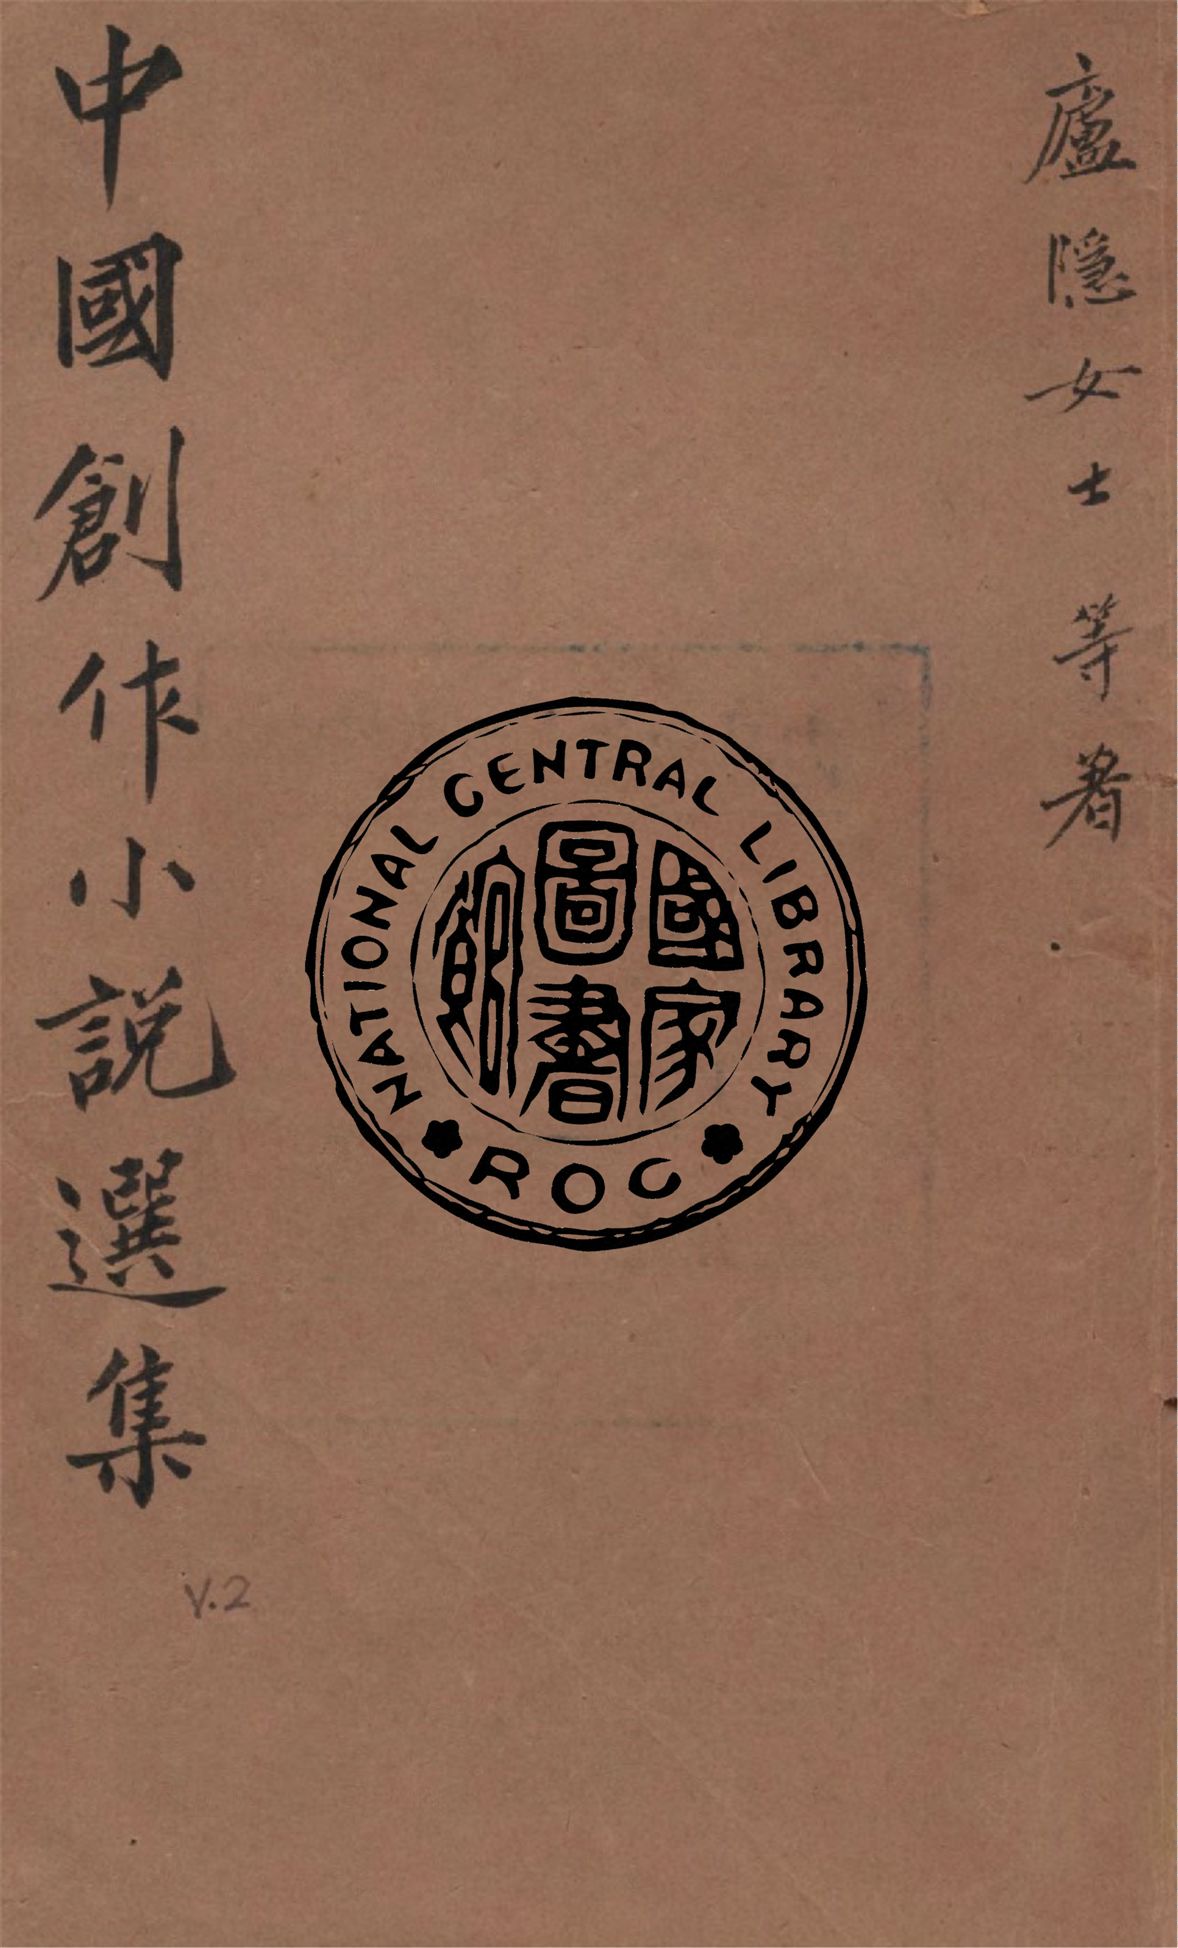 廬隱女士等著
中國創作小説選集
V.2
NATIONAL CENTRAL LIBRARY
ROC
國家
圖書
館